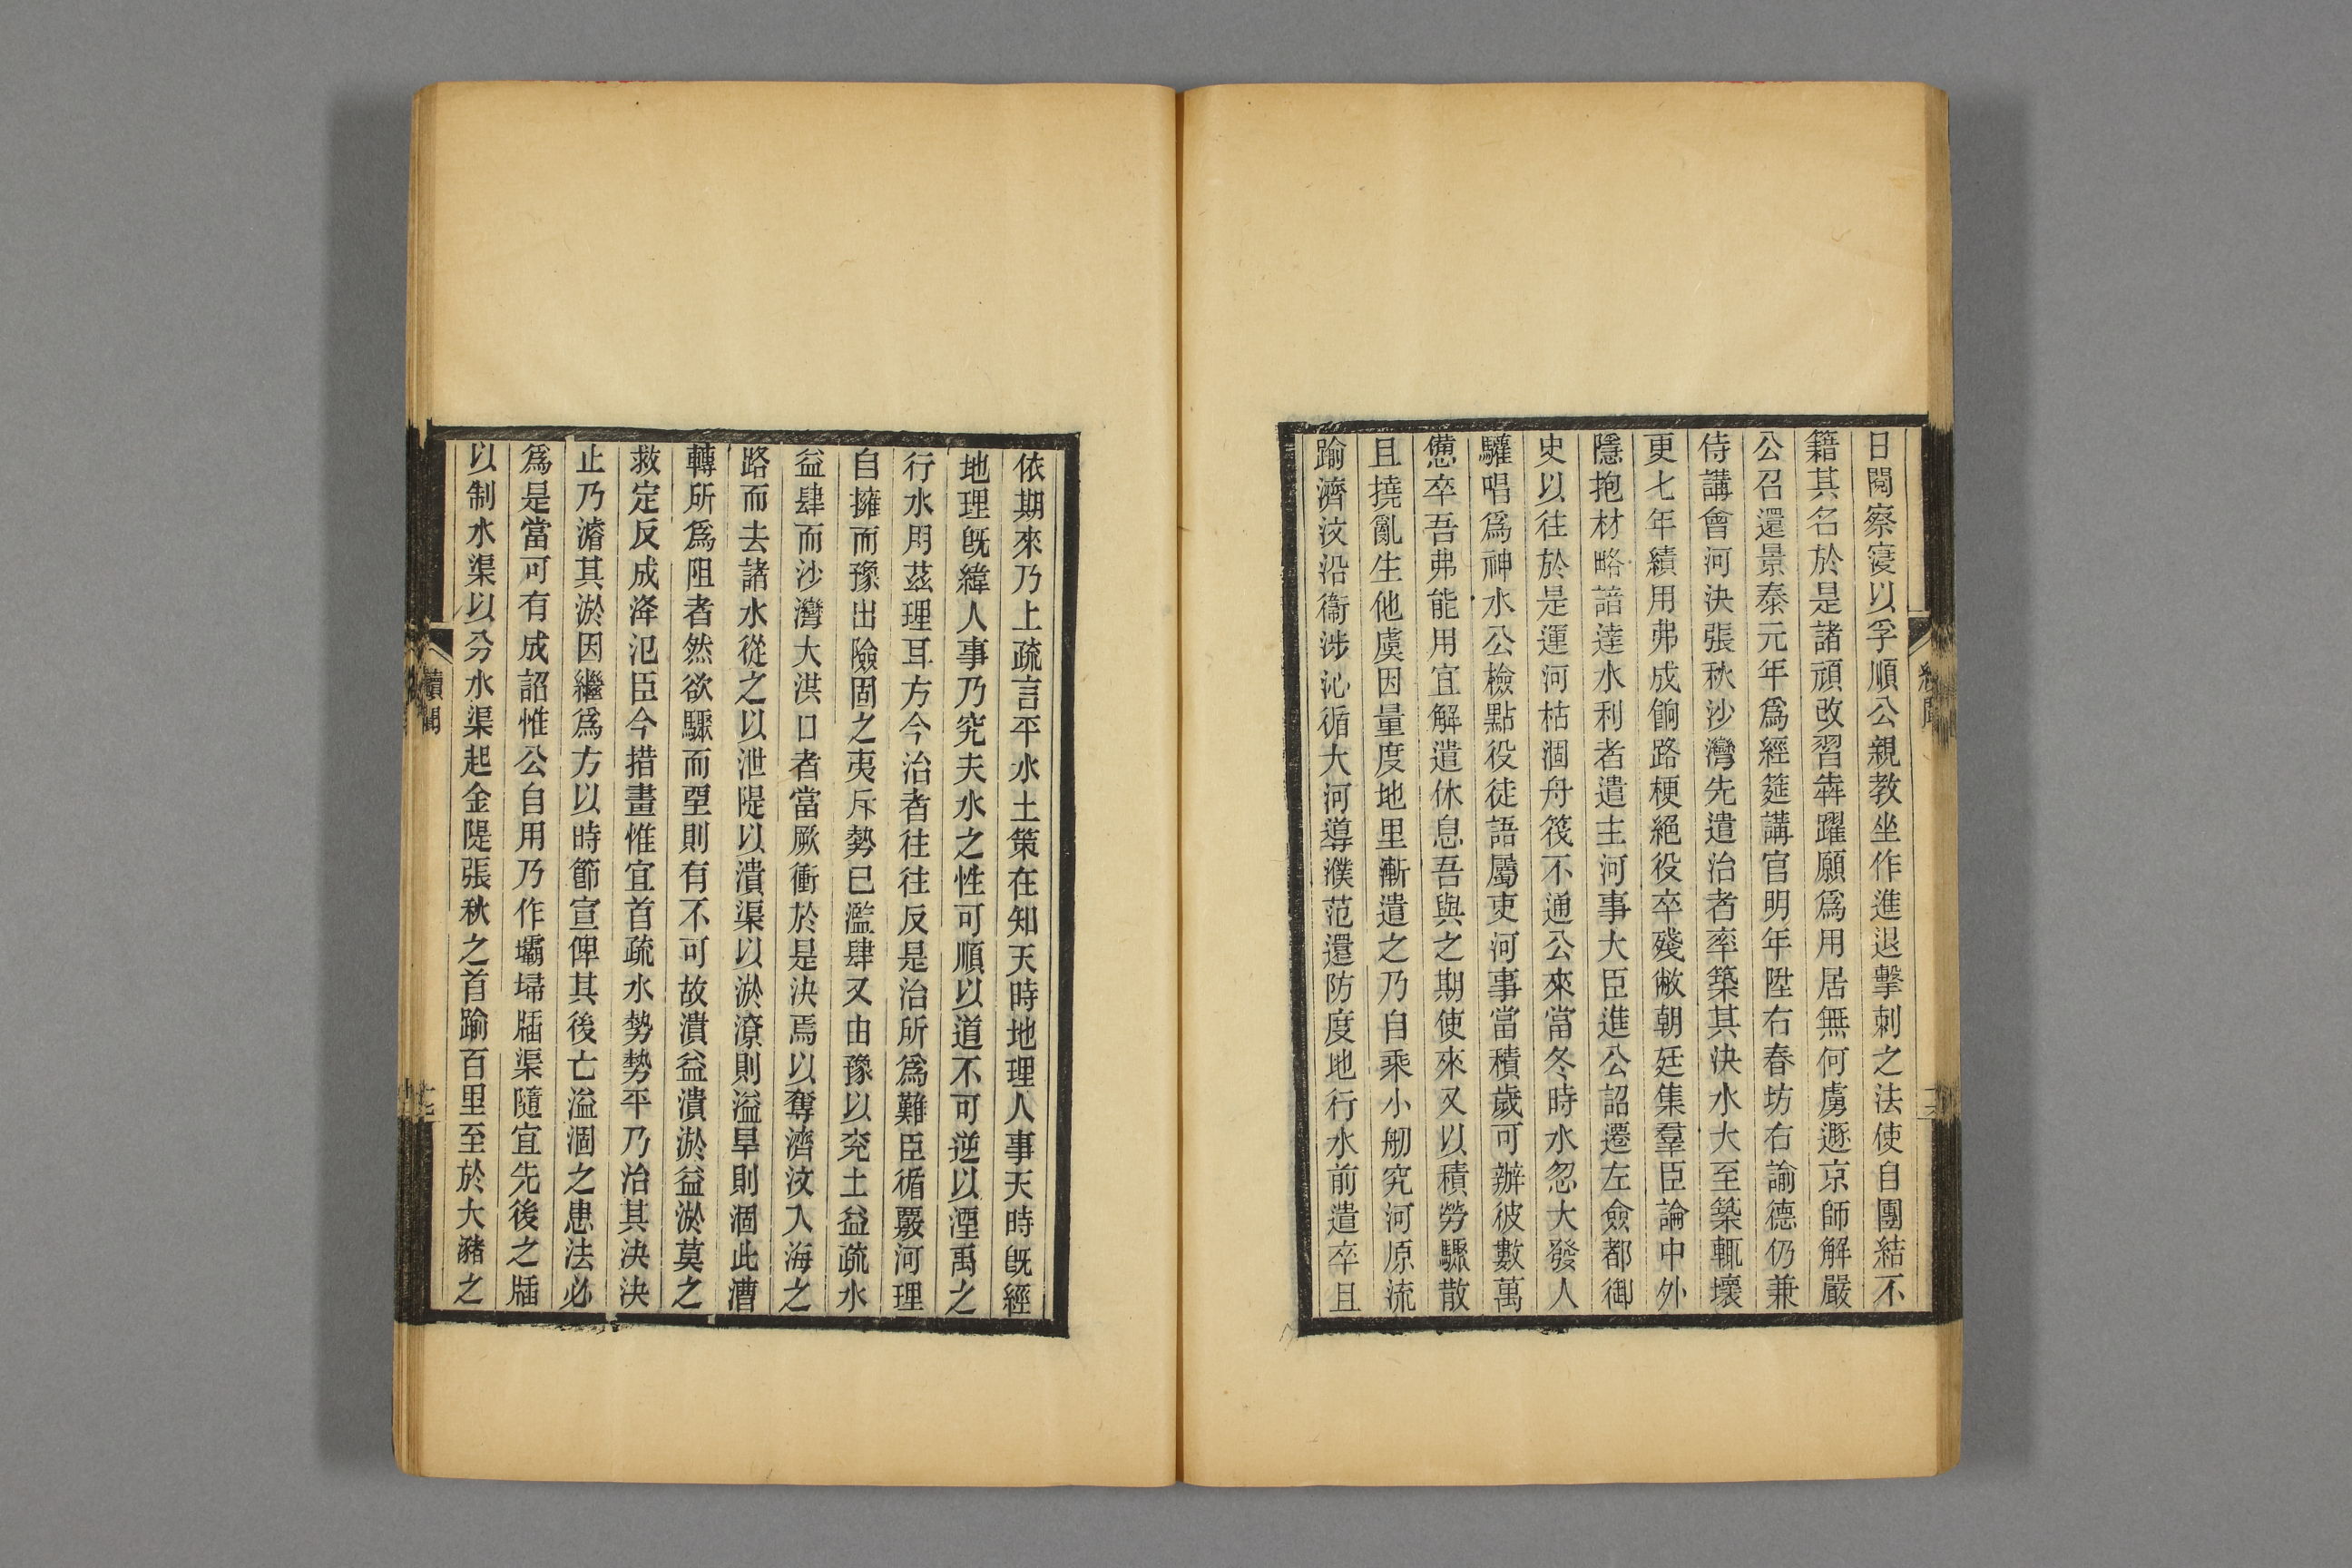 日閱察寖以孚順公親教坐作進退擊刺之法使自團結不
籍其名於是諸頑改習犇躍願爲用居無何虜遯京師解嚴
公召還景泰元年爲經筵講官明年陞右春坊右諭德仍兼
侍講會河決張秋沙灣先遣治者率築其決水大至築輒壞
更七年績用弗成餉路梗絕役卒殘敝朝廷集羣臣論中外
隱抱材略諳達水利者遣主河事大臣進公詔遷左僉都御
史以往於是運河枯涸舟筏不通公來當冬時水忽大發人
驩唱爲神水公檢點役徒語屬吏河事當積歲可辦彼數萬
憊卒吾弗能用宜解遣休息吾與之期使來又以積勞驟散
且撓亂生他虞因量度地里漸遣之乃自乘小舠究河原流
踰濟汶沿衞涉沁循大河導濮范還防度地行水前遣卒且
依期來乃上疏言平水土策在知天時地理人事天時旣經
地理旣緯人事乃究夫水之性可順以道不可逆以湮禹之
行水用茲理耳方今治者往往反是治所爲難臣循覈河理
自擁而豫出險固之夷斥勢已濫肆又由豫以兖土益疏水
益肆而沙灣大洪口者當厥衝於是決焉以奪濟汶入海之
路而去諸水從之以泄隄以潰渠以淤潦則溢旱則涸此漕
轉所爲阻者然欲驟而堊則有不可故潰益潰淤益淤莫之
救定反成洚氾臣今措畫惟宜首疏水勢勢平乃治其决决
止乃濬其淤因繼爲方以時節宣俾其後亡溢涸之患法必
爲是當可有成詔惟公自用乃作壩埽牐渠隨宜先後之牐
以制水渠以分水渠起金隄張秋之首踰百里至於大瀦之
續聞